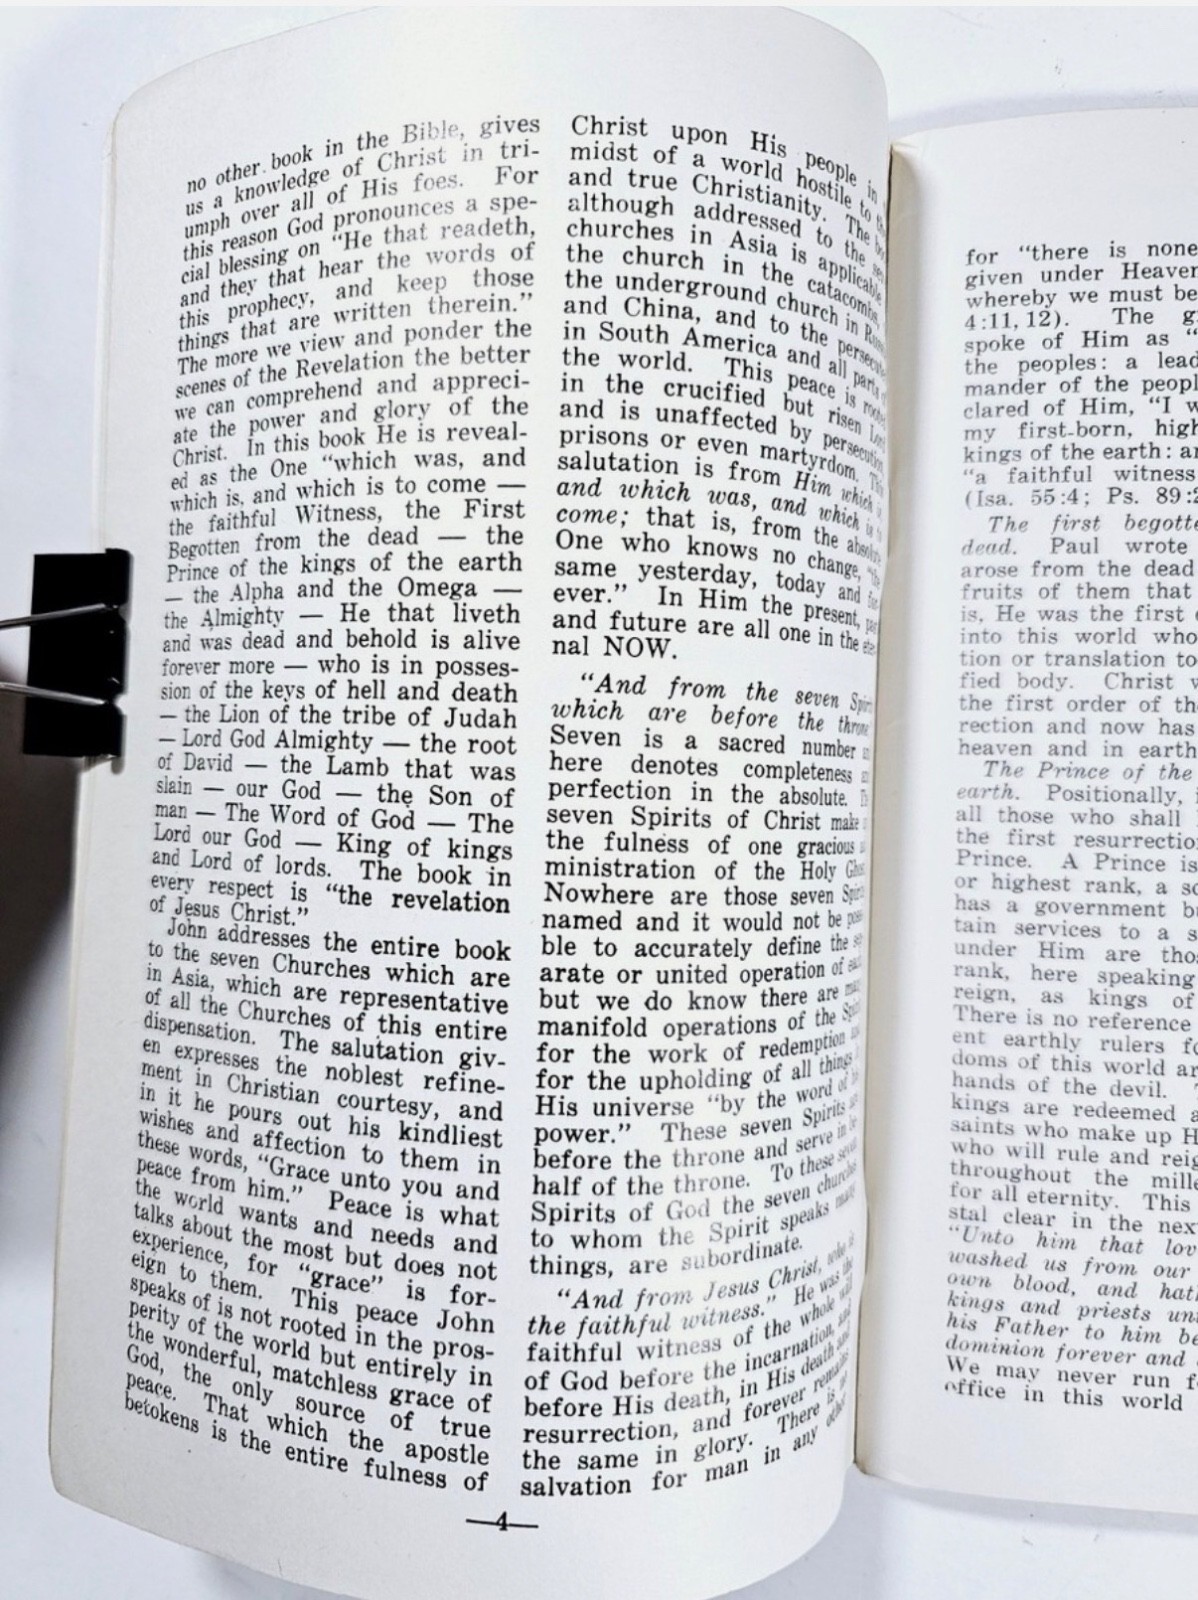 no other book in the Bible, gives
us a knowledge of Christ in tri-
umph over all of His foes. For
this reason God pronounces a spe-
cial blessing on "He that readeth,
and they that hear the words of
this prophecy, and keep those
things that are written therein."
The more we view and ponder the
scenes of the Revelation the better
we can comprehend and appreci-
ate the power and glory of the
Christ. In this book He is reveal-
ed as the One "which was, and
which is, and which is to come —
the faithful Witness, the First
Begotten from the dead — the
Prince of the kings of the earth
— the Alpha and the Omega —
the Almighty — He that liveth
and was dead and behold is alive
forever more — who is in posses-
sion of the keys of hell and death
— the Lion of the tribe of Judah
— Lord God Almighty — the root
of David — the Lamb that was
slain — our God — the Son of
man — The Word of God — The
Lord our God — King of kings
and Lord of lords. The book in
every respect is "the revelation
of Jesus Christ."
John addresses the entire book
to the seven Churches which are
in Asia, which are representative
of all the Churches of this entire
dispensation. The salutation giv-
en expresses the noblest refine-
ment in Christian courtesy, and
in it he pours out his kindliest
wishes and affection to them in
these words, "Grace unto you and
peace from him." Peace is what
the world wants and needs and
talks about the most but does not
experience, for "grace" is for-
eign to them. This peace John
speaks of is not rooted in the pros-
perity of the world but entirely in
the wonderful, matchless grace of
God, the only source of true
peace. That which the apostle
betokens is the entire fulness of
Christ upon His people in
midst of a world hostile to
and true Christianity. The
although addressed to the
churches in Asia is applicable
the church in the catacombs,
the underground church in
and China, and to the
in South America and all parts
the world. This peace is rooted
in the crucified but risen Lord
and is unaffected by persecution,
prisons or even martyrdom. This
salutation is from Him which
and which was, and which is to
come; that is, from the absolute
One who knows no change, "the
same yesterday, today and for-
ever." In Him the present, past
and future are all one in the eter-
nal NOW.
"And from the seven
which are before the throne
Seven is a sacred number
here denotes completeness
perfection in the absolute.
seven Spirits of Christ make
the fulness of one gracious
ministration of the Holy Ghost
Nowhere are those seven
named and it would not be possi-
ble to accurately define the sep-
arate or united operation of each
but we do know there are many
manifold operations of the
for the work of redemption
for the upholding of all things
His universe "by the word of his
power." These seven Spirits are
before the throne and serve in be-
half of the throne. To these seven
Spirits of God the seven churches
to whom the Spirit speaks many
things, are subordinate.
"And from Jesus Christ, who is
the faithful witness." He was the
faithful witness of the whole will
of God before the incarnation, and
before His death, in His death and
resurrection, and forever remains
the same in glory. There is no
salvation for man in any other
—4—
for "there is none
given under Heaven
whereby we must be
4:11, 12). The
spoke of Him as
the peoples: a
mander of the
clared of Him, "I
my first-born,
kings of the earth:
"a faithful witness
(Isa. 55:4; Ps.
The first
dead. Paul wrote
arose from the dead
fruits of them that
is, He was the first
into this world
tion or translation to
fied body. Christ
the first order of
rection and now has
heaven and in earth
The Prince of the
earth. Positionally,
all those who shall
the first
Prince. A Prince is
or highest rank, a
has a government
tain services to a
under Him are
rank, here speaking
reign, as kings of
There is no reference
ent earthly rulers
doms of this world
hands of the devil.
kings are redeemed
saints who make up
who will rule and
throughout the
for all eternity. This
stal clear in the
"Unto him that
washed us from our
own blood, and
kings and priests
his Father to him
dominion forever and
We may never run
office in this world